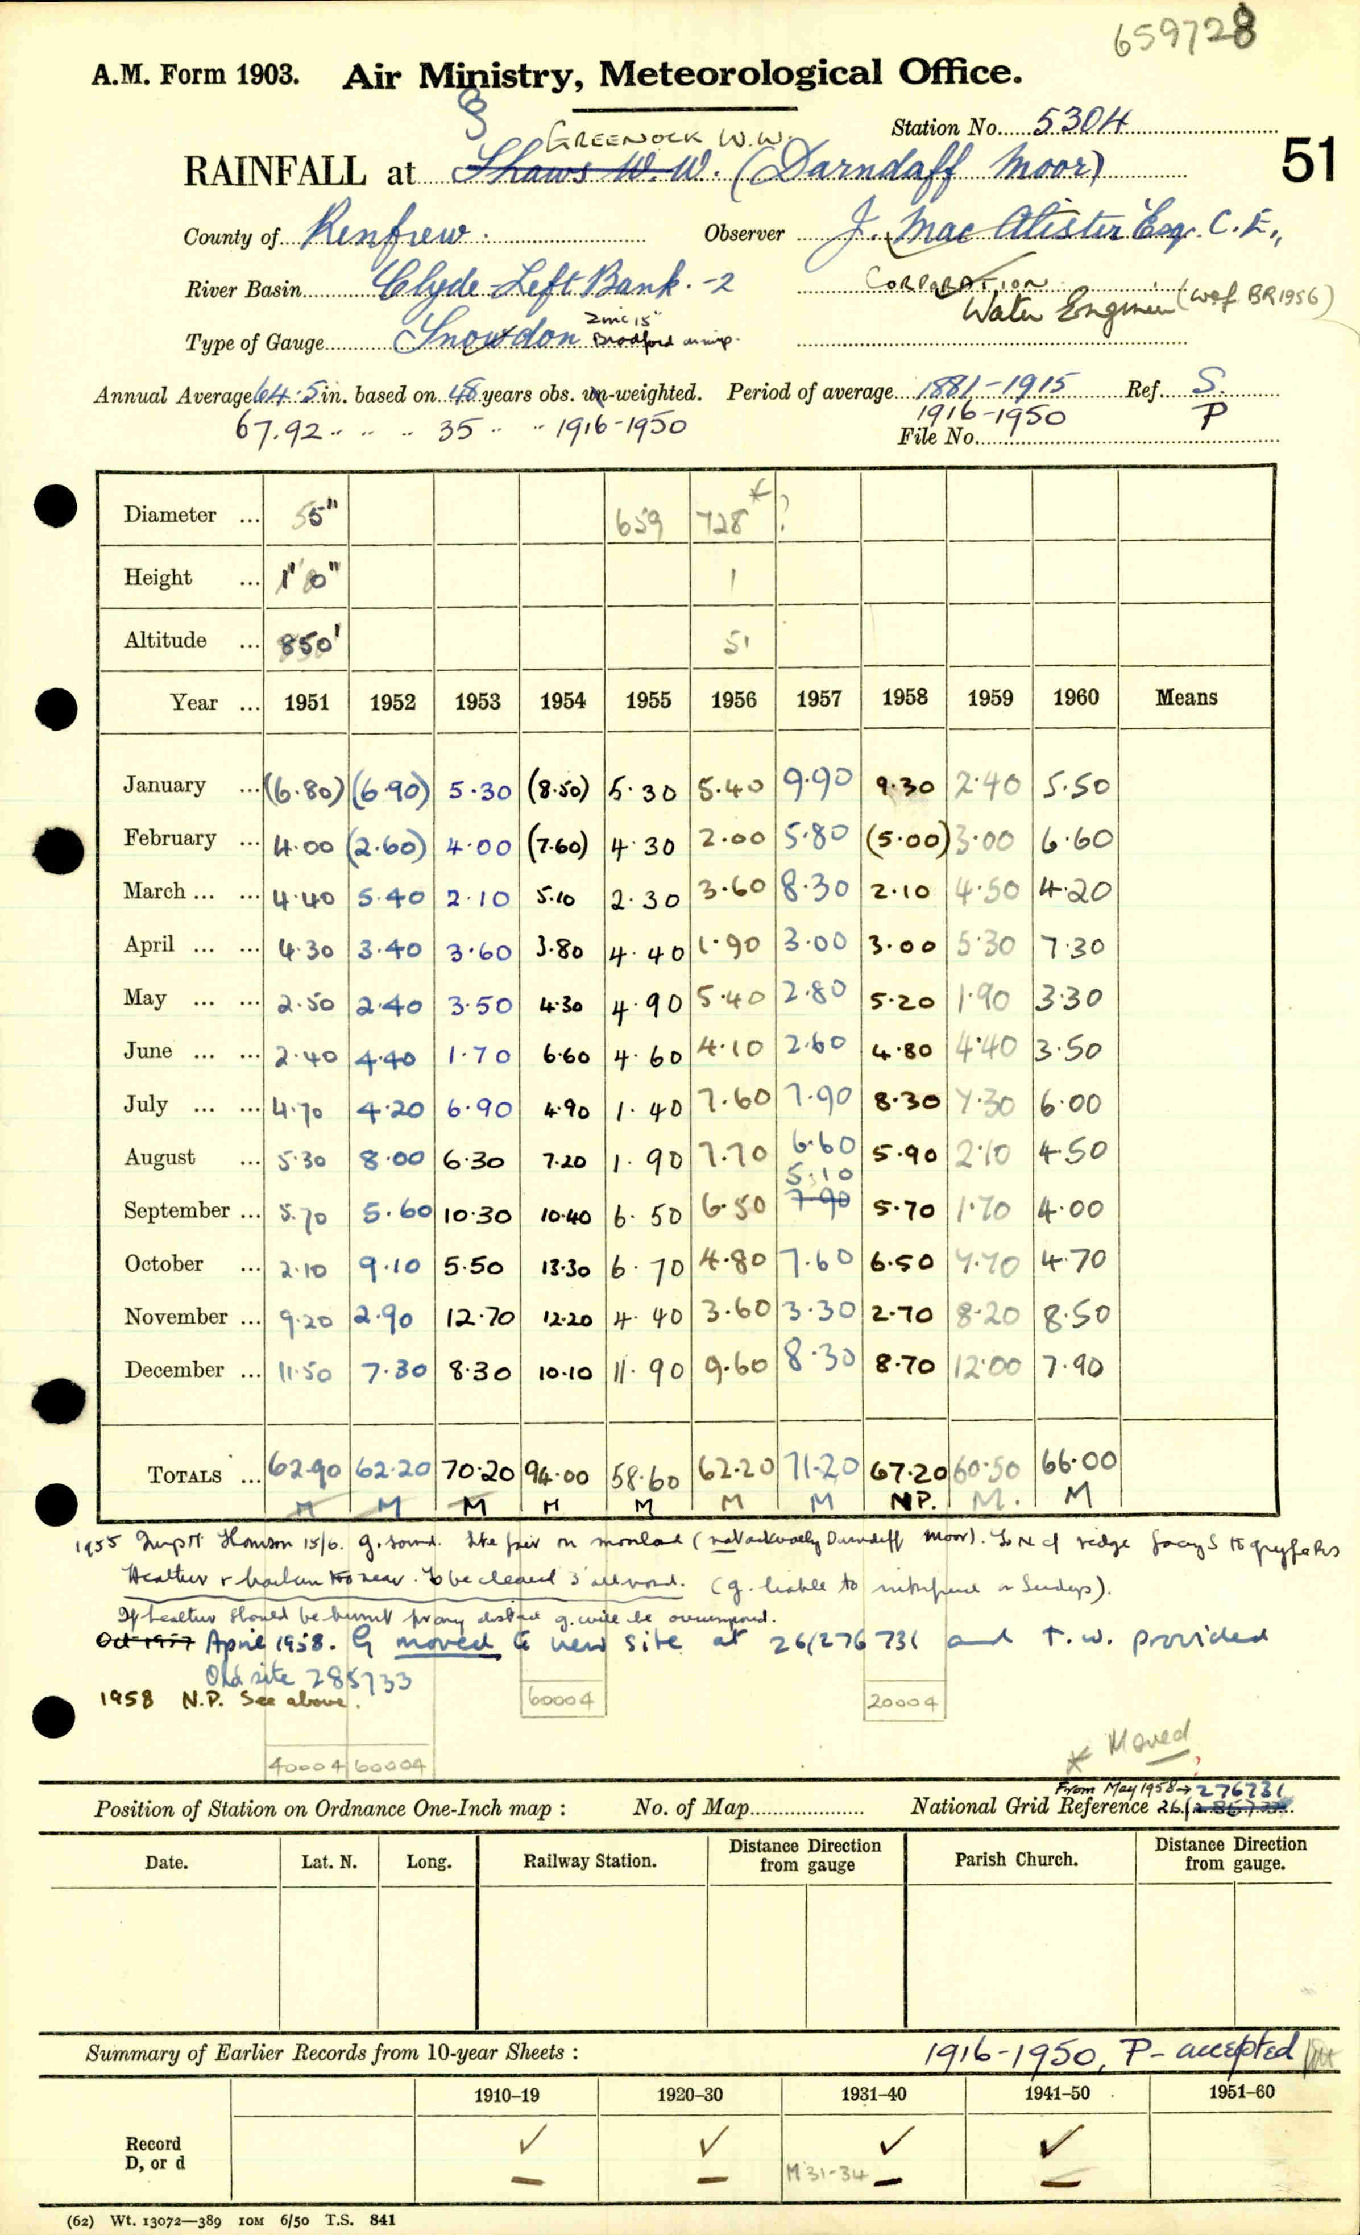 659728
A.M. Form 1903. Air Ministry, Meteorological Office.
Station No. 5304
GREENOCK W.W.
RAINFALL at Shaws W.W. (Darndaff Moor)
51
County of Renfrew. Observer J. MacAlister Esq. C.E.,
River Basin Clyde-Left Bank.-2 CORPORATION
Water Engineer (wef BR1956)
Type of Gauge Snowdon Zinc 15" Bradford
Annual Average 64.5 in. based on 48 years obs. un-weighted. Period of average 1881-1915 Ref. S.
67.92 " " " 35 " " 1916-1950 1916-1950 P
File No.
Diameter ... 5" 659 728 * ?
Height ... 1' 0" 1
Altitude ... 850' 51
Year ... 1951 1952 1953 1954 1955 1956 1957 1958 1959 1960 Means
January ... (6.80) (6.90) 5.30 (8.50) 5.30 5.40 9.90 9.30 2.40 5.50
February ... 4.00 (2.60) 4.00 (7.60) 4.30 2.00 5.80 (5.00) 3.00 6.60
March ... ... 4.40 5.40 2.10 5.10 2.30 3.60 8.30 2.10 4.50 4.20
April ... ... 4.30 3.40 3.60 3.80 4.40 1.90 3.00 3.00 5.30 7.30
May ... ... 2.50 2.40 3.50 4.30 4.90 5.40 2.80 5.20 1.90 3.30
June ... ... 2.40 4.40 1.70 6.60 4.60 4.10 2.60 4.80 4.40 3.50
July ... ... 4.70 4.20 6.90 4.90 1.40 7.60 7.90 8.30 7.30 6.00
August ... 5.30 8.00 6.30 7.20 1.90 7.70 6.60 5.90 2.10 4.50
5.10
September ... 5.70 5.60 10.30 10.40 6.50 6.50 7.90 5.70 1.70 4.00
October ... 2.10 9.10 5.50 13.30 6.70 4.80 7.60 6.50 7.70 4.70
November ... 9.20 2.90 12.70 12.20 4.40 3.60 3.30 2.70 8.20 8.50
December ... 11.50 7.30 8.30 10.10 11.90 9.60 8.30 8.70 12.00 7.90
TOTALS ... 62.90 62.20 70.20 94.00 58.60 62.20 71.20 67.20 60.50 66.00
M M M M M M M NP. M. M
1955 Insp Thomson 15/6. g. sound. Site fair on moorland (not actually Darndaff Moor). To N of ridge facing S
Heather & bracken too near. To be cleared 3' all round. (g. liable to on Sundays).
If heather should be burnt for any distance g. will be
Oct 1957 April 1958. G moved to new site at 26/276731 and T.W. provided
Old site 285733
1958 N.P. See above.
60004 20004
40004 60004
* Moved
?
From May 1958→276731
Position of Station on Ordnance One-Inch map : No. of Map National Grid Reference 26/
Date. Lat. N. Long. Railway Station. Distance from gauge Direction Parish Church. Distance Direction from gauge.
Summary of Earlier Records from 10-year Sheets : 1916-1950, P- accepted
1910–19 1920–30 1931–40 1941–50 1951–60
Record D, or d ✓ ✓ ✓ ✓
— — M 31-34 — —
(62) Wt. 13072—389 10M 6/50 T.S. 841